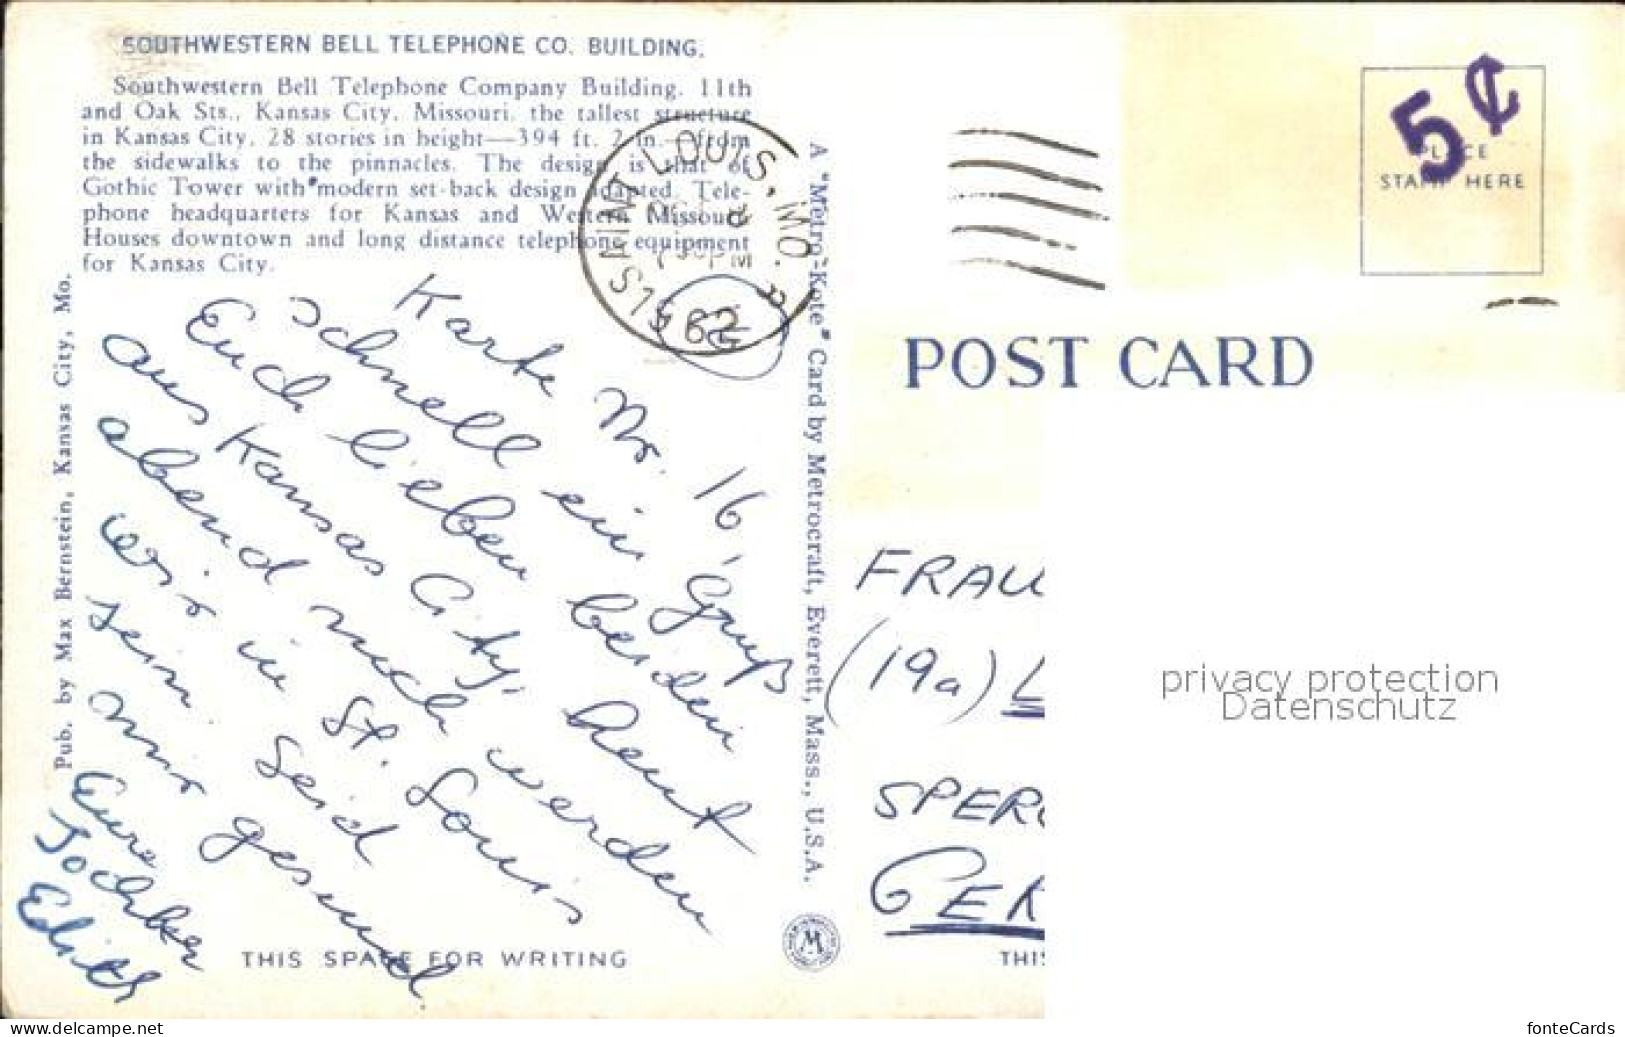 SOUTHWESTERN BELL TELEPHONE CO. BUILDING.
Southwestern Bell Telephone Company Building. 11th
and Oak Sts., Kansas City, Missouri, the tallest structure
in Kansas City, 28 stories in height—394 ft. 2 in.—from
the sidewalks to the pinnacles. The design is that of
Gothic Tower with modern set-back design adapted. Tele-
phone headquarters for Kansas and Western Missouri.
Houses downtown and long distance telephone equipment
for Kansas City.
Pub. by Max Bernstein, Kansas City, Mo.
A "Metro-Kote" Card by Metrocraft, Everett, Mass., U.S.A.
SAINT LOUIS, MO.
PM
1962
5¢
PLACE
STAMP HERE
POST CARD
Karte Nr. 16
Schnell ein Gruß
Euch lieben beiden
aus Kansas City, heut
abend noch werden
wir in St. Louis
sein. Seid
mir gesund
Eure
Edith
FRAU
(19a) L
SPER
GER
THIS SPACE FOR WRITING
THIS
M
privacy protection
Datenschutz
www.delcampe.net
fonteCards